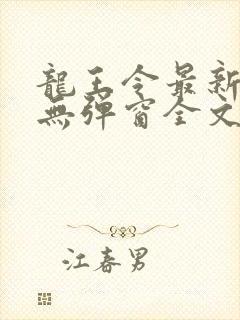 龍王令最新
無彈窗全文
江春男